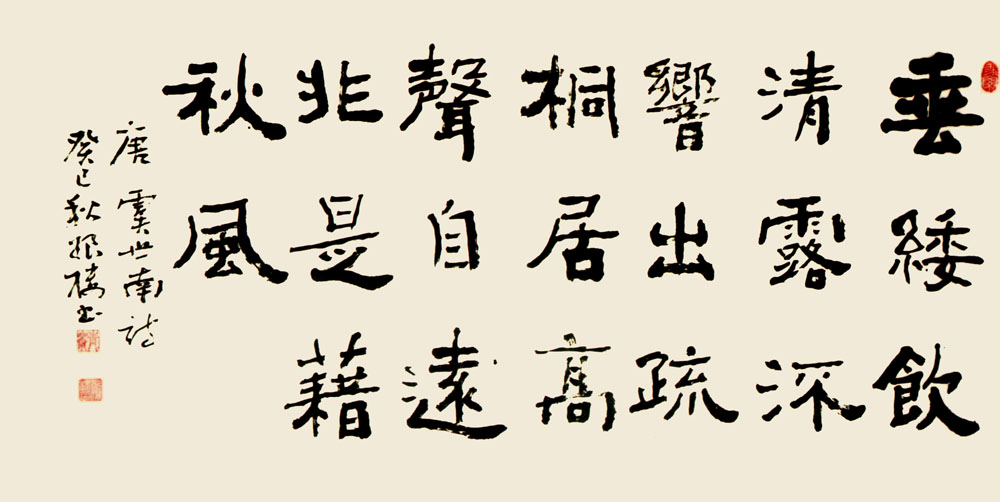 垂緌飲
清露深
響出疏
桐居高
聲自遠
非是藉
秋風
唐虞世南詩
癸巳秋書